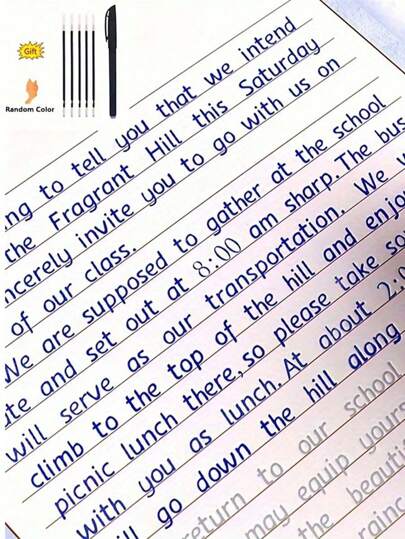 Gift
Random Color
to tell you that we intend
the Fragrant Hill this Saturday
invite you to go with us on
of our class.
We are supposed to gather at the school
and set out at 8:00 am sharp. The bus
will serve as our transportation. We
climb to the top of the hill and
picnic lunch there, so please take
with you as lunch. At about
go down the hill along
to our school
may equip
the